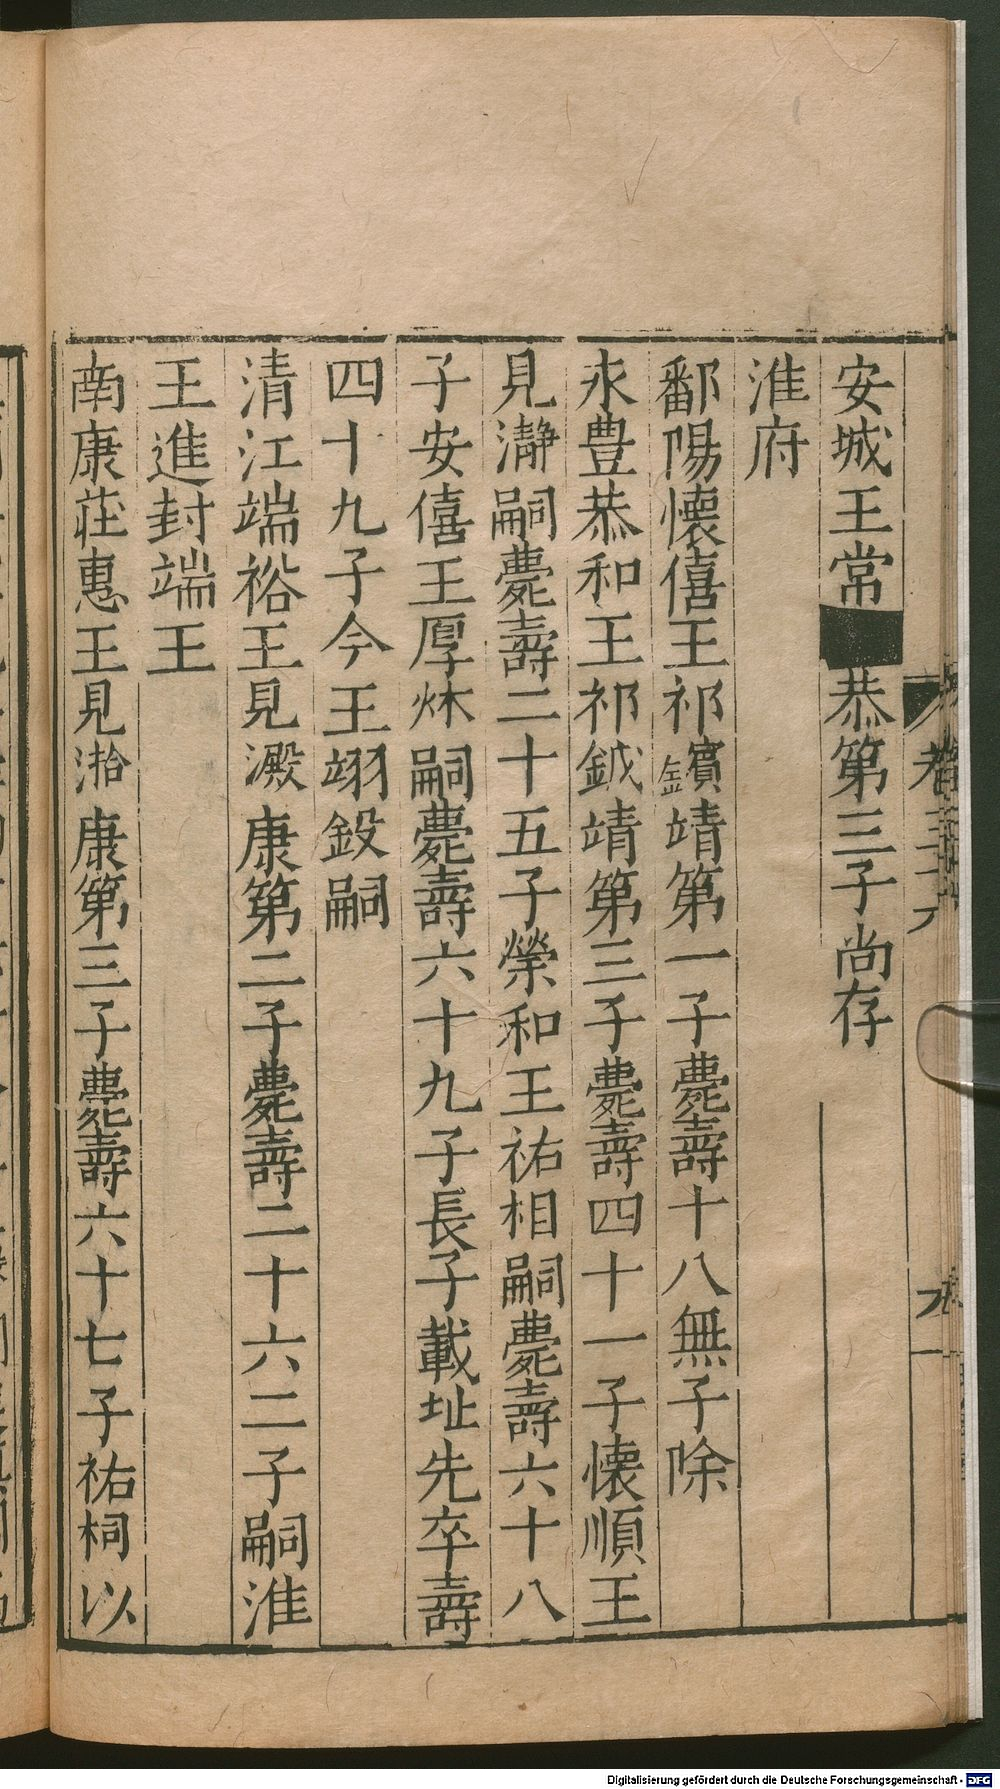 安城王常恭第三子尚存
淮府
鄱陽懷僖王祁鑌靖第一子薨壽十八無子除
永豊恭和王祁鉞靖第三子薨壽四十一子懷順王
見瀞嗣薨壽二十五子榮和王祐相嗣薨壽六十八
子安僖王厚烌嗣薨壽六十九子長子載址先卒壽
四十九子今王翊鈠嗣
清江端裕王見澱康第二子薨壽二十六二子嗣淮
王進封端王
南康莊惠王見湁康第三子薨壽六十七子祐桐以
Digitalisierung gefördert durch die Deutsche Forschungsgemeinschaft - DFG